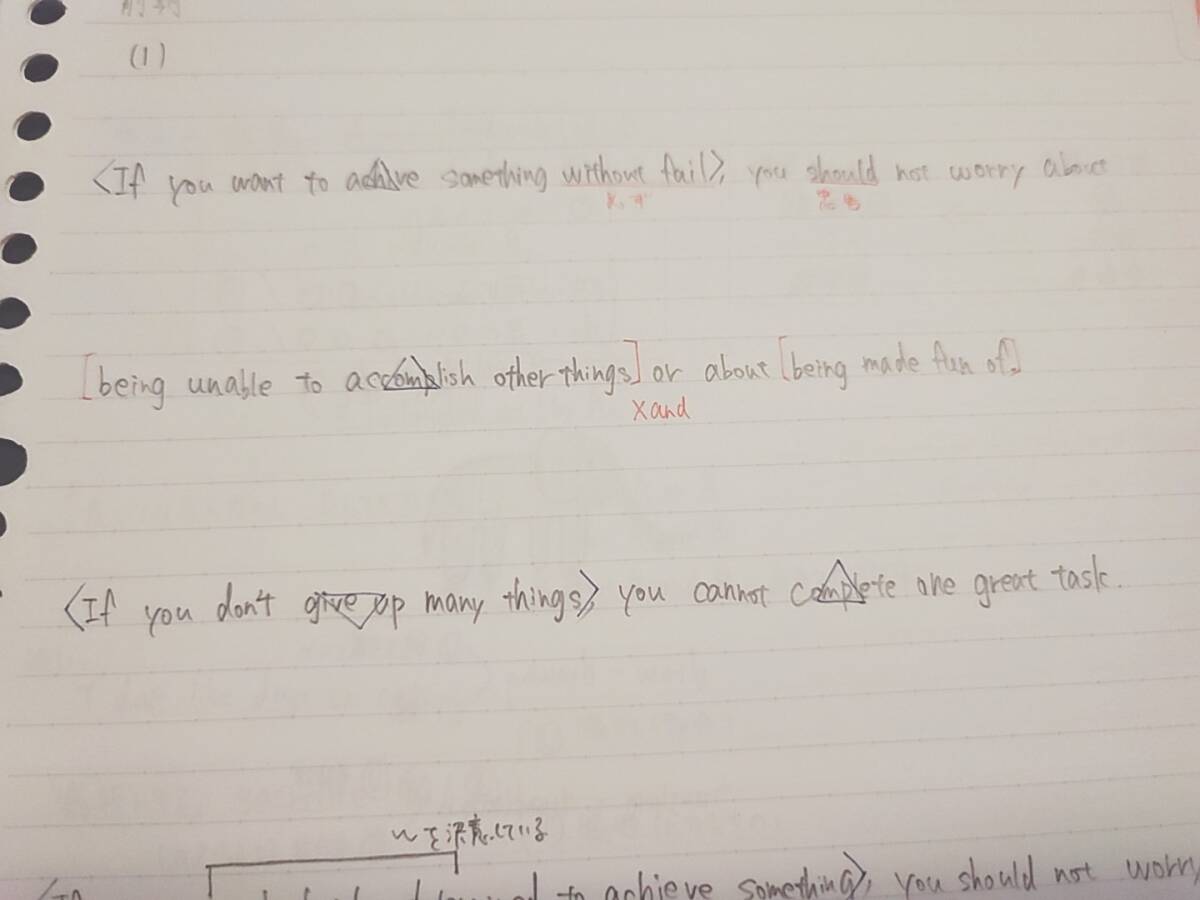 (1)
<If you want to achive something without fail>, you should not worry about
[being unable to accomplish other things] or about [being made fun of]
xand
<If you don't give up many things> you cannot complete one great task.
〜を決意している
to achieve something>, you should not worry